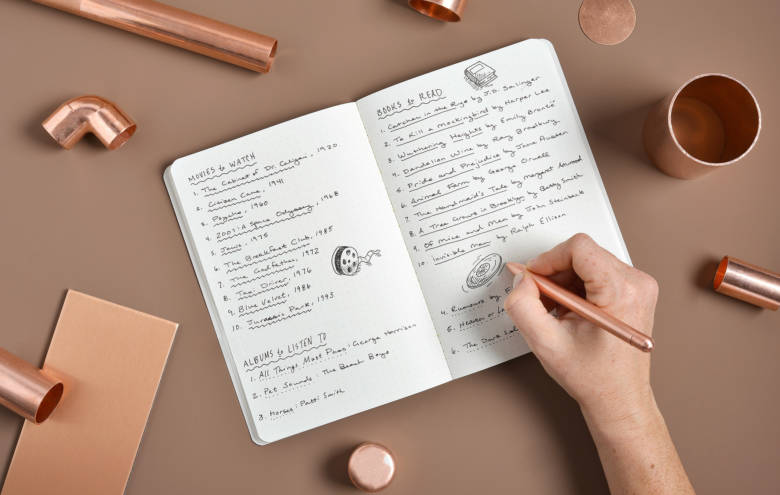 MOVIES to WATCH
1. The Cabinet of Dr. Caligari, 1920
2. Citizen Cane, 1941
3. Psycho, 1960
4. 2001: A Space Odyssey, 1968
5. Jaws, 1975
6. The Breakfast Club, 1985
7. The Godfather, 1972
8. Taxi Driver, 1976
9. Blue Velvet, 1986
10. Jurassic Park, 1993
ALBUMS to LISTEN TO
1. All Things Must Pass: George Harrison
2. Pet Sounds: The Beach Boys
3. Horses: Patti Smith
BOOKS to READ
1. Catcher in the Rye by J.D. Salinger
2. To Kill a Mockingbird by Harper Lee
3. Wuthering Heights by Emily Brontë
4. Dandelion Wine by Ray Bradbury
5. Pride and Prejudice by Jane Austen
6. Animal Farm by George Orwell
7. The Handmaid's Tale by Margaret Atwood
8. A Tree Grows in Brooklyn by Betty Smith
9. Of Mice and Men by John Steinbeck
10. Invisible Man by Ralph Ellison
4. Rumours by
5. Heaven or
6. The Dark